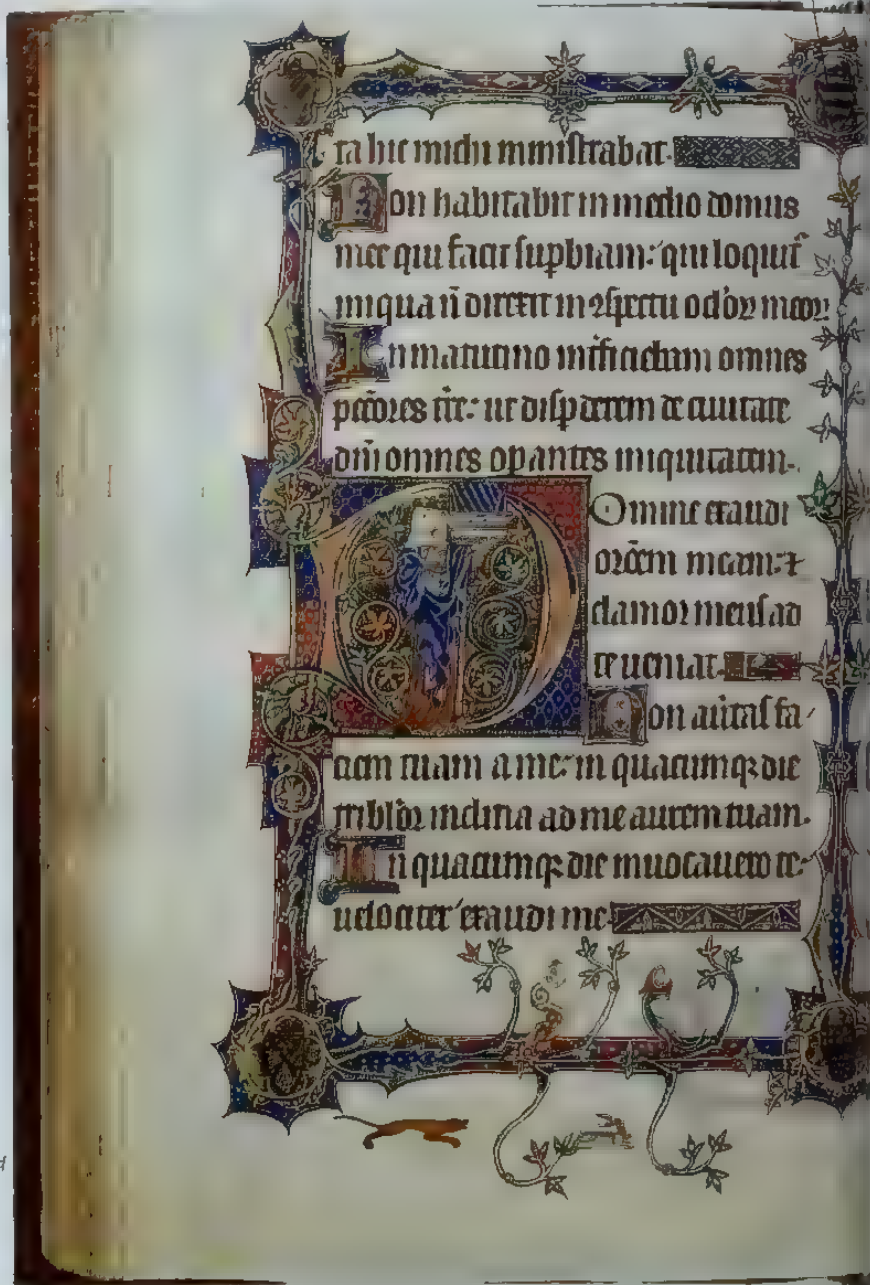 ta hic michi ministrabat.
Non habitabit in medio domus
mee qui facit supbiam: qui loquit᷑
iniqua n̄ direxit in ꝯspectu oc̄lor̄ meoꝝ
In matutino int̄ficiebam omnes
pecc̄ores t̄re: ut dispderem de ciuitate
dn̄i omnes opantes iniquitatem.
Domine exaudi
or̄oem meam: ⁊
clamor meus ad
te ueniat.
Non aūtas fa
ciem tuam a me: in quacumqꝫ die
tribl̄or inclina ad me aurem tuam.
In quacumqꝫ die inuocauero te:
uelociter exaudi me.